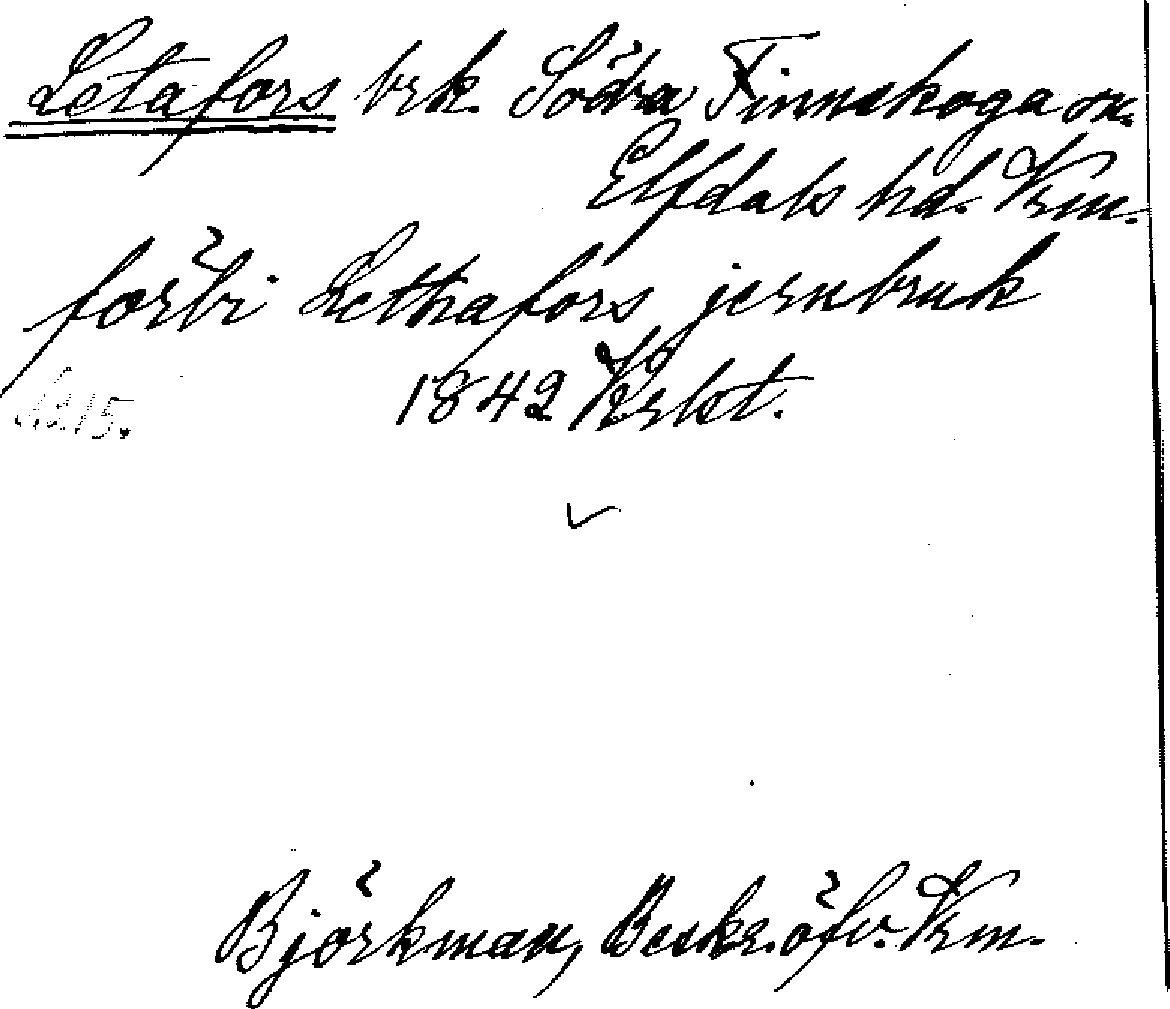 Letafors brk. Södra Finnskoga sn.
Elfdals hd. Vrm.
förbi Lethafors jernbruk
1842 Vrlst.
Björkman, Beskr. öfv. Vrm.